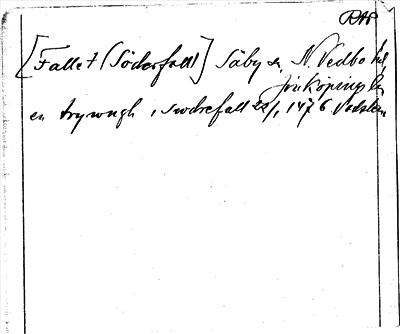 RAP
[Fallet (Söderfall)] Säby sn, N. Vedbo hd,
Jönköpings län
en trywngh i swdrefall 22/1 1476 Vadstena